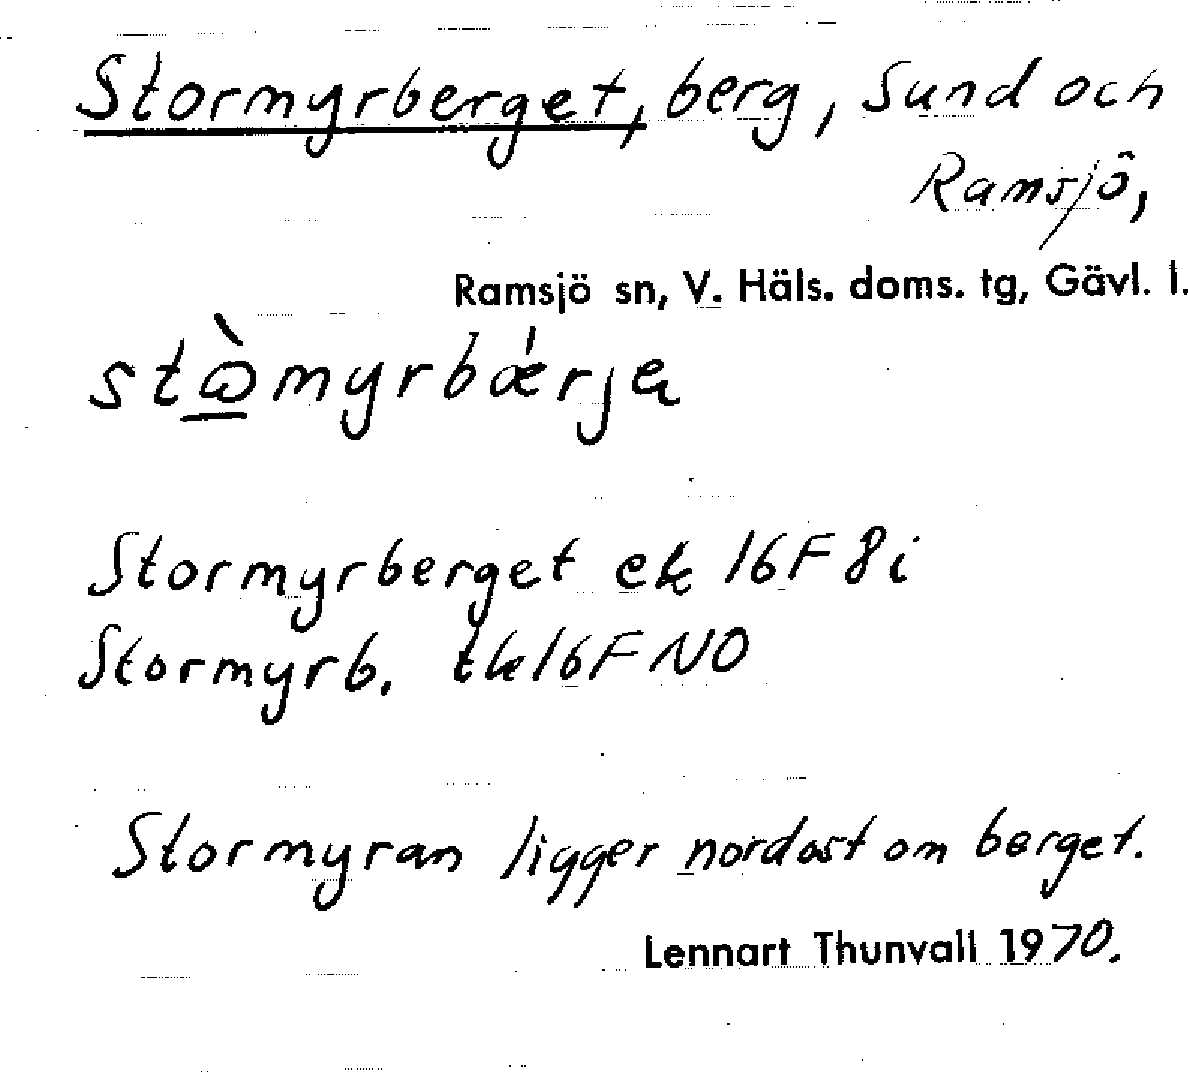 Stormyrberget, berg, Sund och
Ramsjö,
Ramsjö sn, V. Häls. doms. tg, Gävl. l.
Stormyrberget ek 16F8i
Stormyrb. tk16F NO
Stormyran ligger nordost om berget.
Lennart Thunvall 1970.